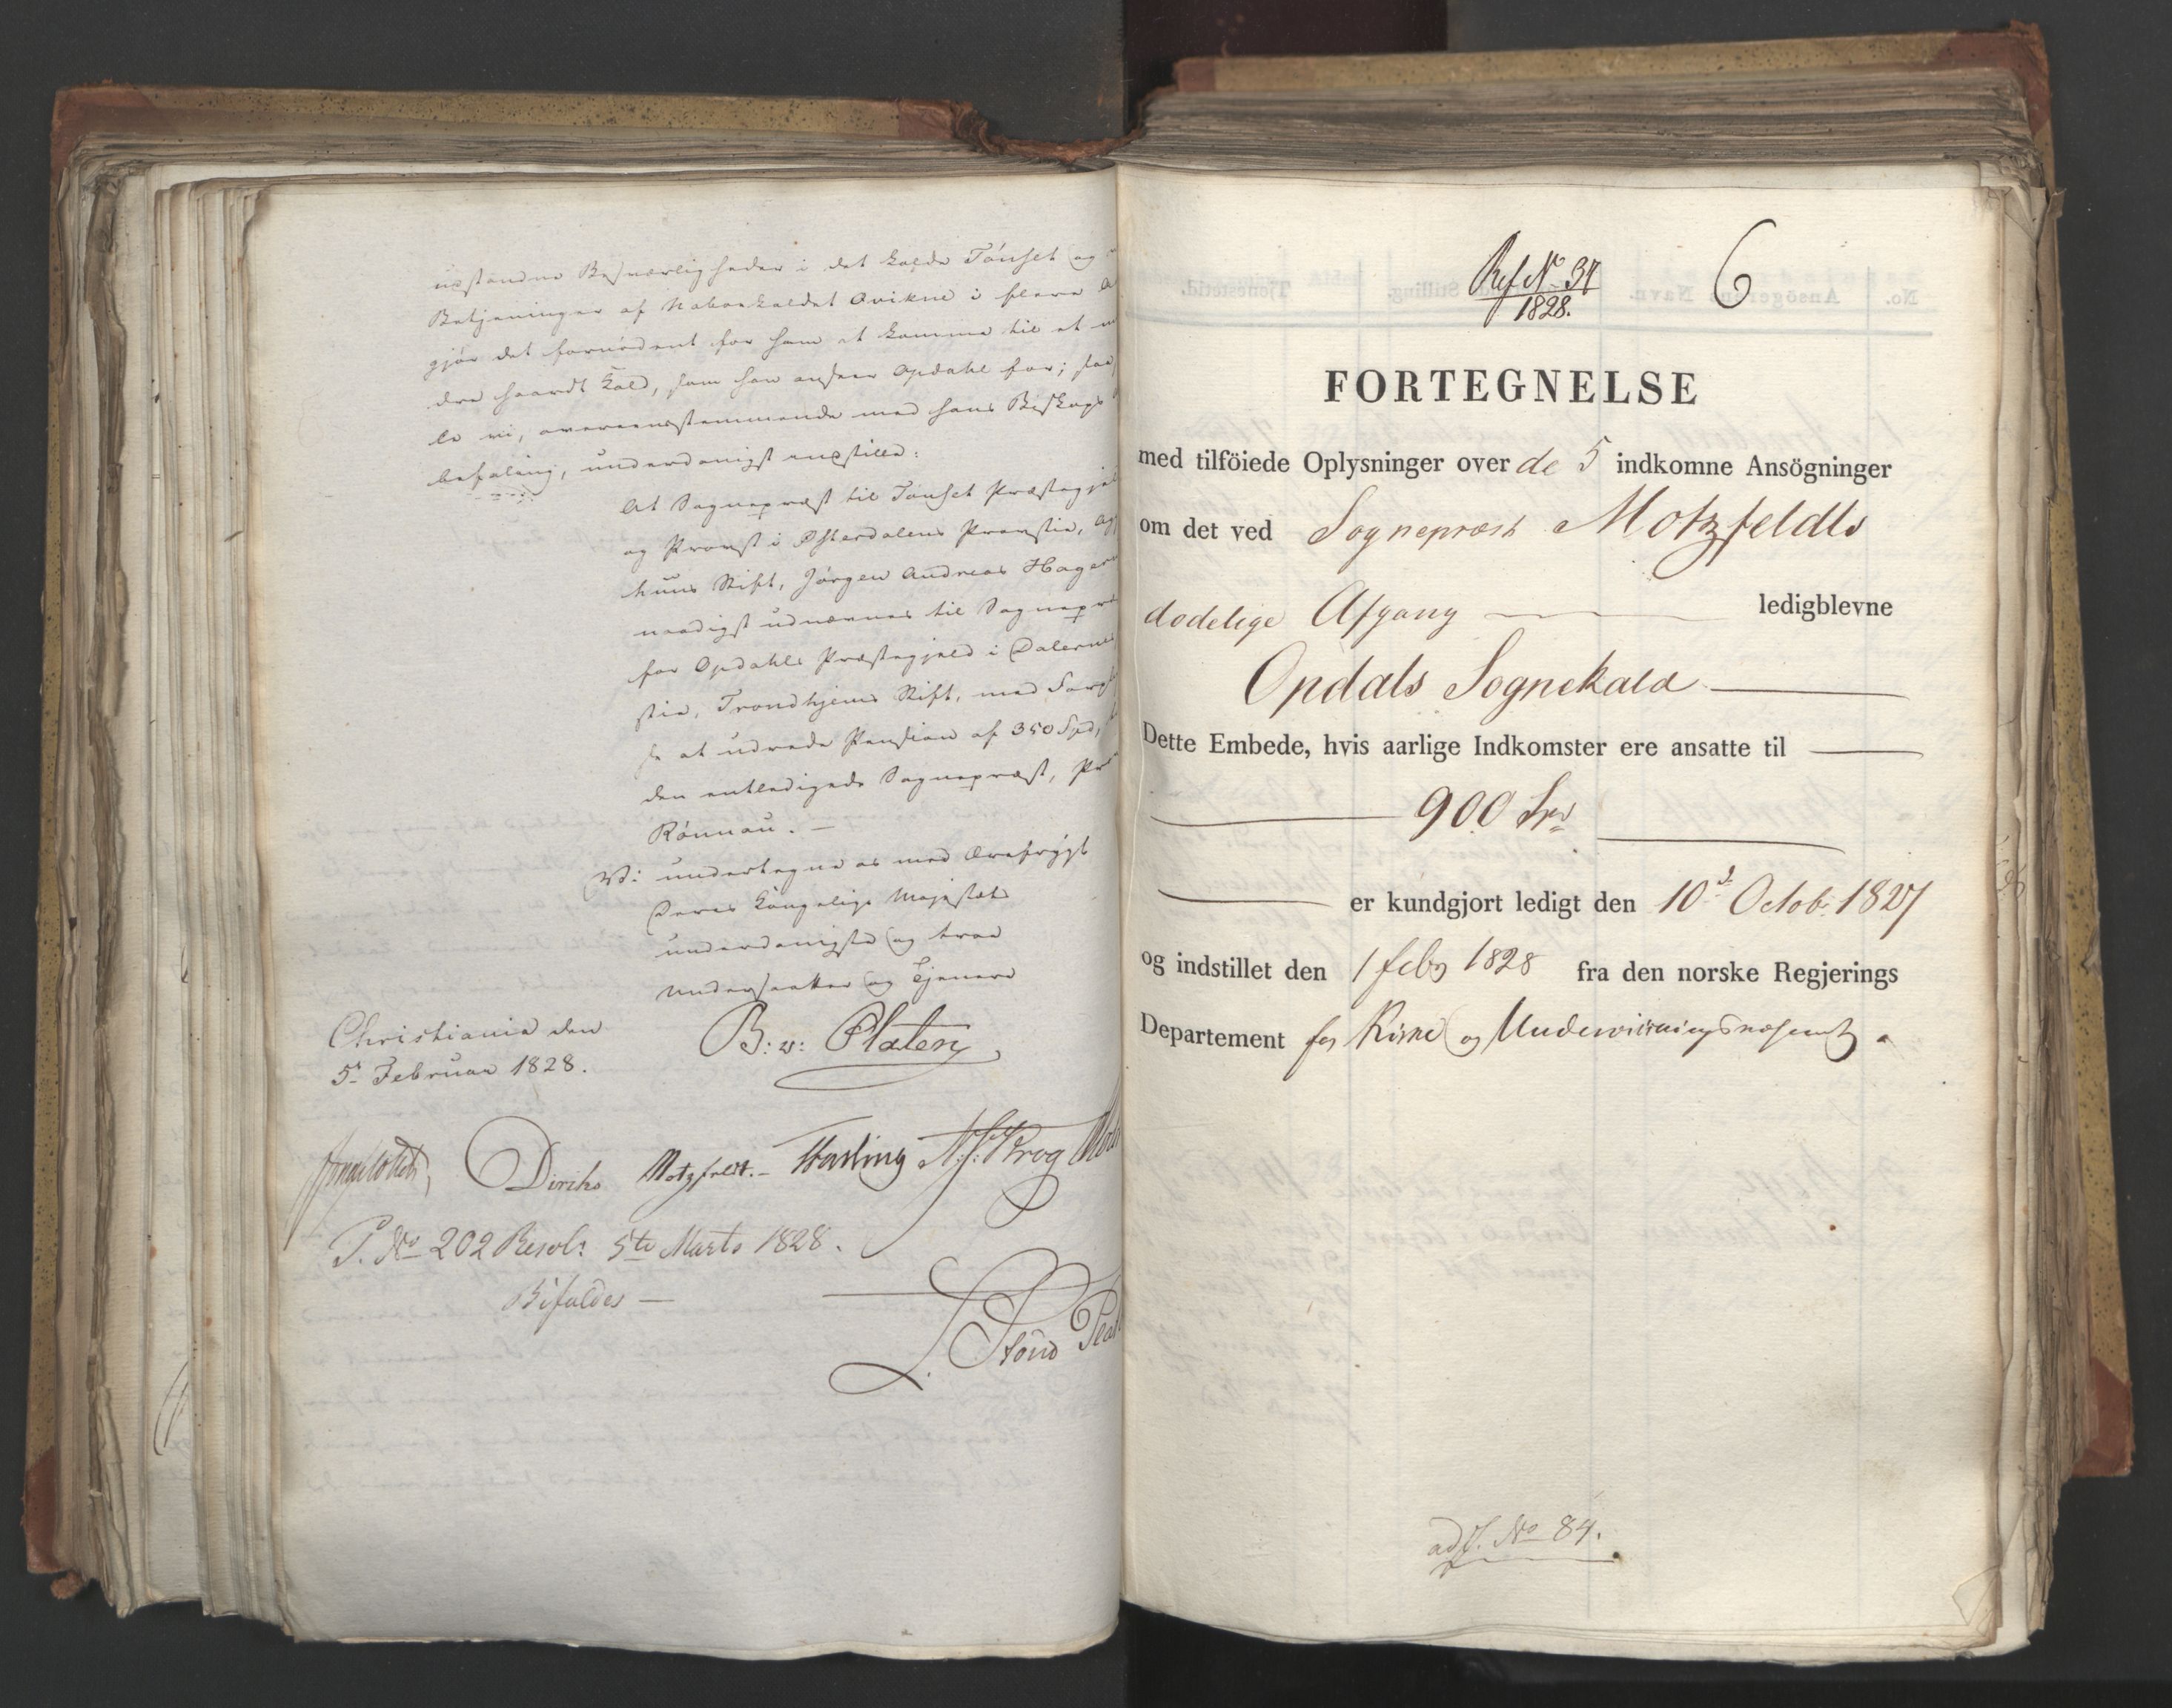 anstændne Besværligheder i det kolde Tönset og
Betjeninger af Nabokaldet Qvikne i flere
gjör det fornödent for ham at komme til et
dre haardt Kald, som han anseer Opdahl for;
le vi, overeensstemmende med hans Biskops
befaling, underdanigst indstille:
At Sognepræst til Tönset Præstegjel
og Provst i Østerdalens Provstie, Ag
huus Stift, Jörgen Andreas Hager
naadigst udnævnes til Sognepræ
for Opdahls Præstegjeld i Dalernes
stie, Trondhjems Stift, med Forpl
se at udrede Pension af 350 Spd,
den entledigede Sognepræst, Pr
Rönnau. —
Vi undertegne os med Ærefrygt
Deres Kongelige Majestæts
underdanigste og troe
Undersaatter og Tjenere
Christiania den
5te Februar 1828.
B: v: Platen
Diriks Motzfeldt. Fasting N. J. Krog
P. No 202 Resol: 5te Marts 1828.
Bifaldes —
Ref No 37
1828.
6
FORTEGNELSE
med tilföiede Oplysninger over de 5 indkomne Ansögninger
om det ved Sognepræst Motzfeldts
dödelige Afgang — ledigblevne
Opdals Sognekald —
Dette Embede, hvis aarlige Indkomster ere ansatte til —
— 900 Spd —
— er kundgjort ledigt den 10d Octob: 1827
og indstillet den 1 febr 1828 fra den norske Regjerings
Departement for Kirke og Underviisningsvæsenet.
ad J. No 84.